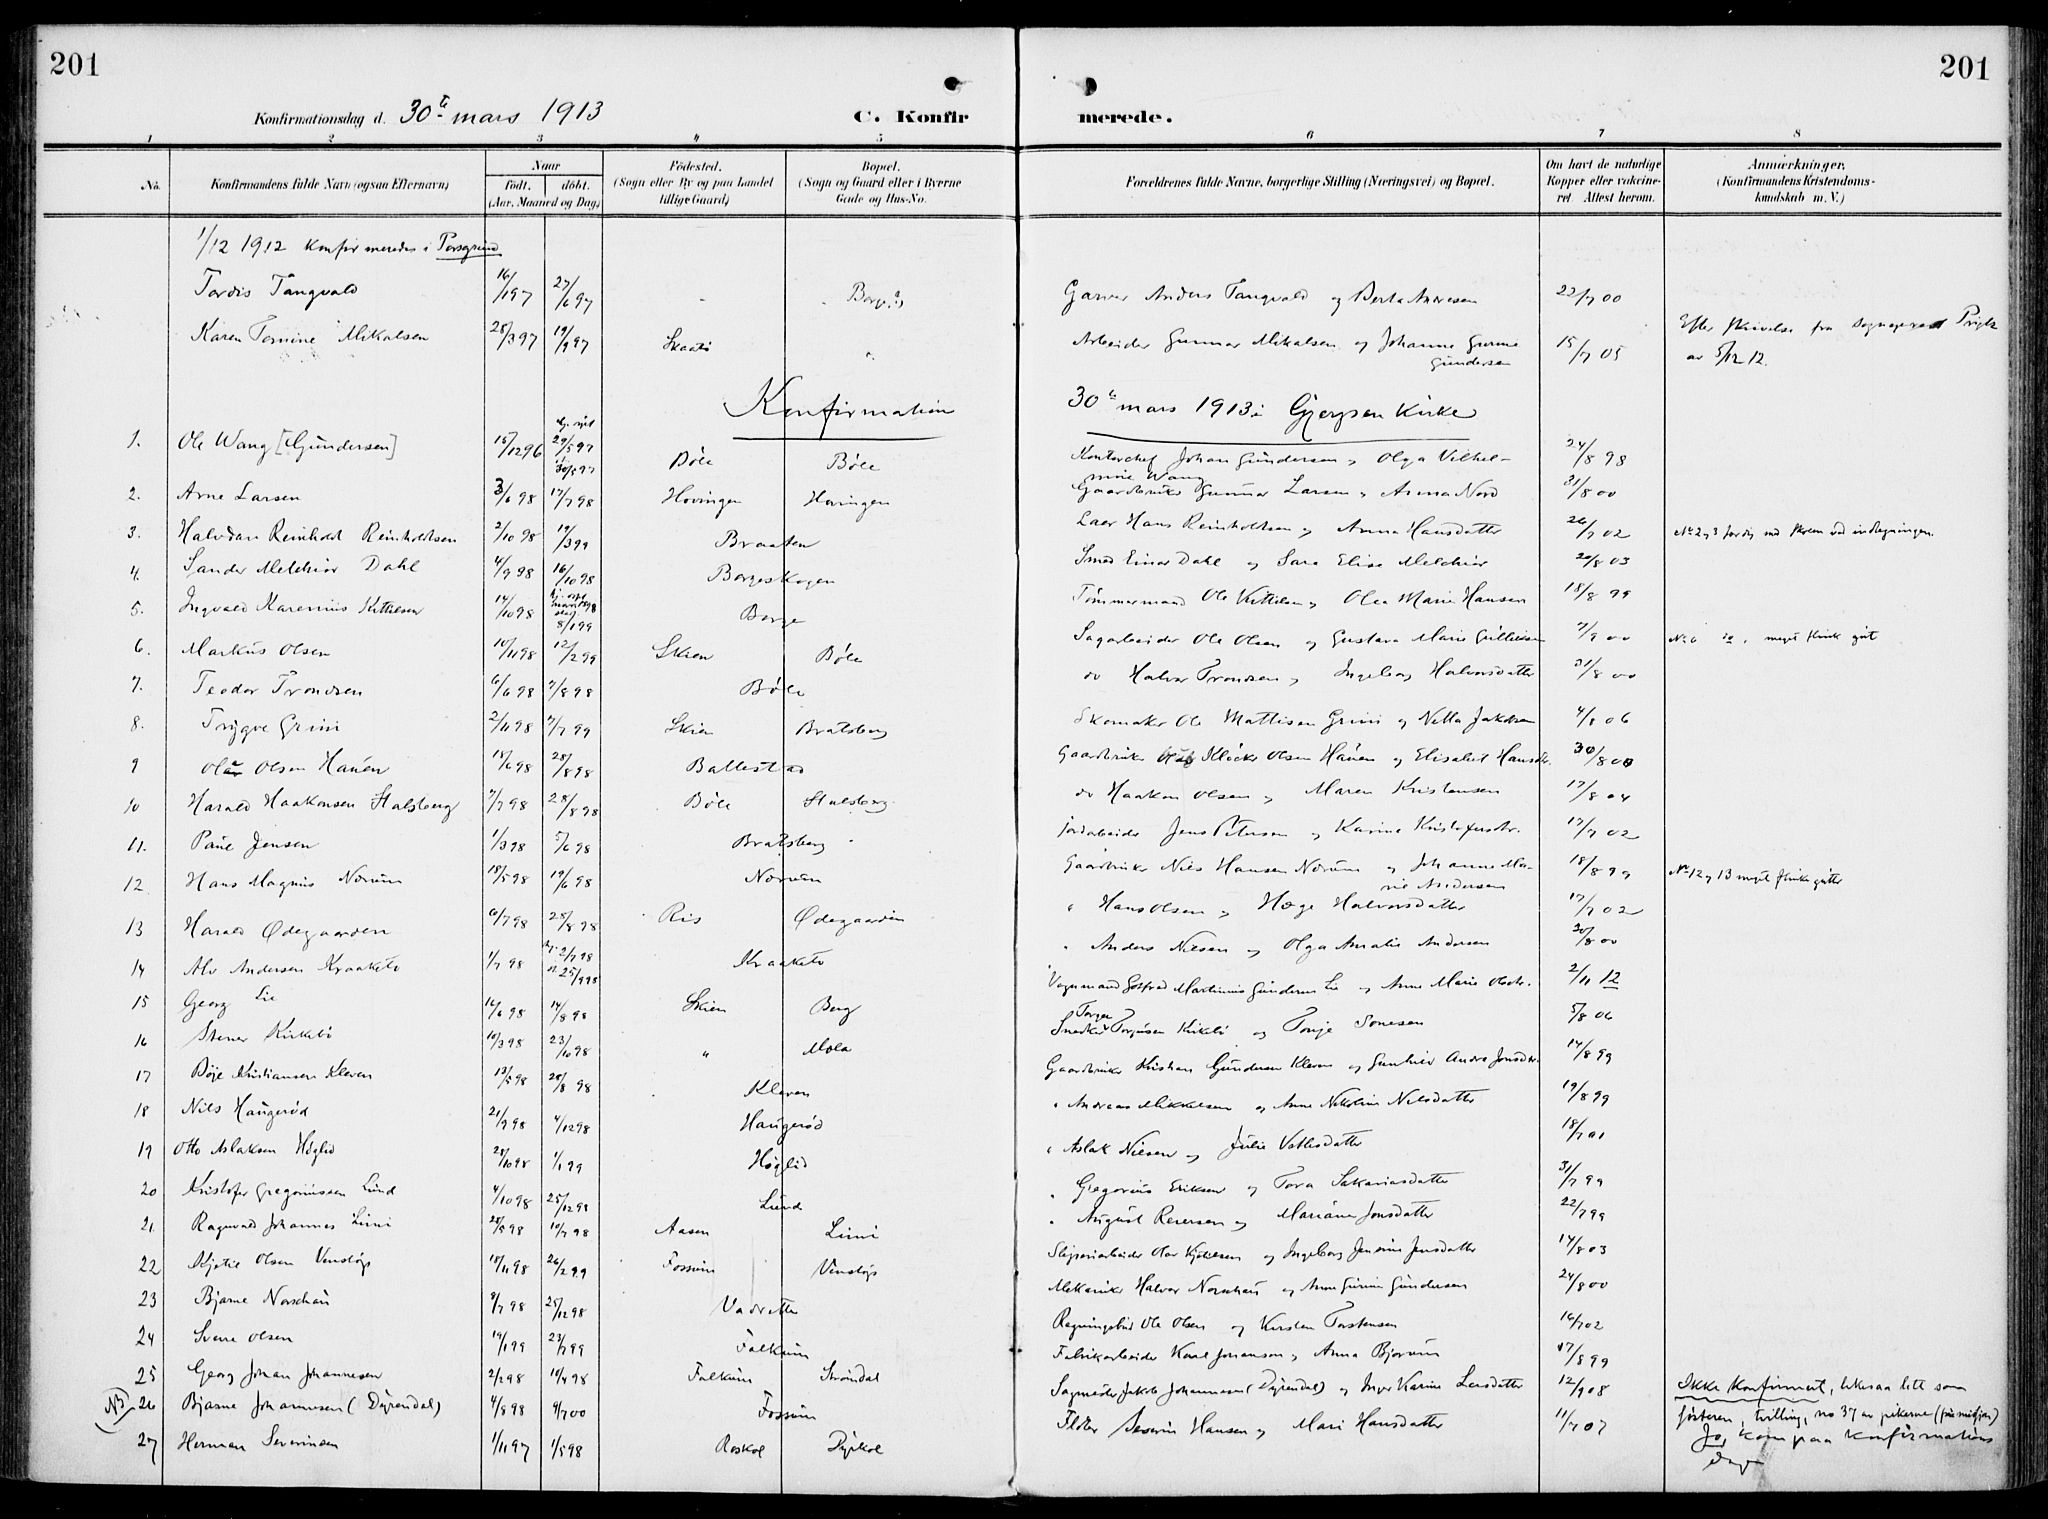 201
201
Konfirmationsdag d. 30te mars 1913
C. Konfir
merede.
1 2 3 4 5 6 7 8
No.
Konfirmandens fulde Navn (ogsaa Efternavn)
Naar
født. døbt.
(Aar, Maaned og Dag)
Födested.
(Sogn eller By og paa Landet
tillige Gaard)
Bopæl.
(Sogn og Gaard eller i Byerne
Gade og Hus-No.
Forældrenes fulde Navne, borgerlige Stilling (Næringsvei) og Bopæl.
Om havt de naturlige
Kopper eller vakcine-
ret Attest herom.
Anmærkninger.
(Konfirmandens Kristendoms-
kundskab m. V.)
1/12 1912 Konfirmeredes i Porsgrund
Tordis Tangvald 16/1 97 27/6 97 Borge Garver Anders Tangvald og Berta Andresen 22/7 00
Karen Tomine Mikalsen 28/3 97 19/9 97 Skaatø " Arbeider Gunnar Mikalsen og Johanne Gurine Gundersen 15/7 05 Efter skrivelse fra
av 5/12 12.
Konfirmation 30te mars 1913 i Gjerpen Kirke
1. Ole Wang [Gundersen] 15/12 96 29/5 97 30/5 97 Bøle Bøle Kontorchef Johan Gundersen og Olga Vilhel-
mine Wang 24/8 98
2. Arne Larsen 3/6 98 17/7 98 Hovingen Hovingen Gaardbruker Gunnar Larsen og Anna Nord 31/8 00
3. Halvdan Reinholdt Reinholdtsen 2/10 98 19/3 99 Braaten Hans Reinholdtsen og Anna Hansdatter 26/7 02 No 2 og 3
4. Sander Melchior Dahl 4/9 98 16/10 98 Borgeskogen Smed Einar Dahl og Sara Elise Melchior 20/8 03
5. Ingvald Karenius Kittilsen 14/10 98 8/1 99 Borge Tømmermand Ole Kittilsen og Olea Marie Hansen 18/8 99
6. Markus Olsen 10/11 98 12/2 99 Skien Bøle Sagarbeider Ole Olsen og Gustava Marie 7/9 00 No 6 meget flink gut
7. Teodor Trondsen 6/6 98 7/8 98 Bøle do Halvor Trondsen og Ingeborg Halvorsdatter 31/8 00
8. Trygve Grini 2/11 98 7/7 99 Skien Bratsberg Skomaker Ole Mattisen Grini og Nella Jakobsen 4/8 06
9 Olav Olsen Hauen 18/6 98 28/8 98 Ballestad Gaardbruker Kløcker Olsen Hauen og Elisabet Hansdtr. 30/8 00
10 Harald Haakonsen Stulsberg 7/7 98 28/8 98 Bøle Stulsberg do Haakon Olsen og Maren Kristensen 17/8 04
11. Paul Jensen 1/3 98 5/6 98 Bratsberg Jordarbeider Jens Petersen og Karine Kristofersdtr. 17/7 02
12 Hans Magnus Nærum 18/5 98 19/6 98 Nærum Gaardbruker Nils Hansen Nærum og Johanne Ma-
rie Andersen 18/8 99 No 12 og 13 meget flinke gutter
13 Harald Ødegaarden 6/7 98 28/8 98 Ris Ødegaarden " Hans Olsen og Hæge Halvorsdatter 17/7 02
14 Alv Andersen Kraaketo 1/7 98 2/7 98 25/9 98 Kraaketo " Anders Nilsen og Olga Amalie Andersen 30/8 00
15 Georg Lie 16/6 98 14/8 98 Skien Berg Vognmand Gotfred Martinius Gundersen Lie og Anne Marie Olsdtr. 2/11 12
16 Stener Kirkebø 10/3 98 23/10 98 " Mæla Snedker Torger Torgusen Kirkebø og Tonje Tonesen 5/8 06
17 Bøje Kristiansen Kleven 13/5 98 28/8 98 Kleven Gaardbruker Kristian Gundersen Kleven og Gunhild Andrea Jonsdtr. 14/8 99
18 Nils Haugerød 21/9 98 4/12 98 Haugerød " Andreas Mikkelsen og Anne Nikoline Nilsdatter 19/8 99
19 Otto Aslaksen Høglid 28/10 98 1/1 99 Høglid " Aslak Nilsen og Julie Vetlesdatter 18/7 01
20 Kristofer Gregoriussen Lund 4/10 98 25/12 98 Lund " Gregorius Eriksen og Tora Sakariasdatter 31/7 99
21 Ragnvald Johannes Limi 28/5 98 10/7 98 Aasen Limi " August Reiersen og Mariane Jonsdatter 22/7 99
22 Kjetil Olsen Venstøp 18/11 98 26/2 99 Fossum Venstøp Sliperiarbeider Olav Kjetilsen og Ingeborg Jensine Jensdatter 14/8 03
23 Bjarne Norschau 8/7 98 25/12 98 Vadrette Mekaniker Halvor Norschau og Anne Gurine Gundersen 24/8 00
24 Sverre Olsen 19/1 99 23/7 99 Falkum Regningsbud Ole Olsen og Kirsten Torstensen 16/7 02
25 Georg Johan Johannesen 2/2 98 10/4 98 Falkum Strømdal Fabrikarbeider Karl Johansen og Anna Bjørum 17/8 99
NB 26 Bjarne Johannesen (Dyrendal) 4/8 98 4/7 00 Fossum Sagmester Jakob Johannesen (Dyrendal) og Inger Karine Larsdatter 12/9 08 Ikke Konfirmert, likesaa litt som
søsteren, tvilling, no 37 av pikerne
27 Herman Severinsen 1/11 97 1/5 98 Raskol Dypkol Fløter Severin Hansen og Mari Hansdatter 11/7 07 Jo, kom paa Konfirmations
dag